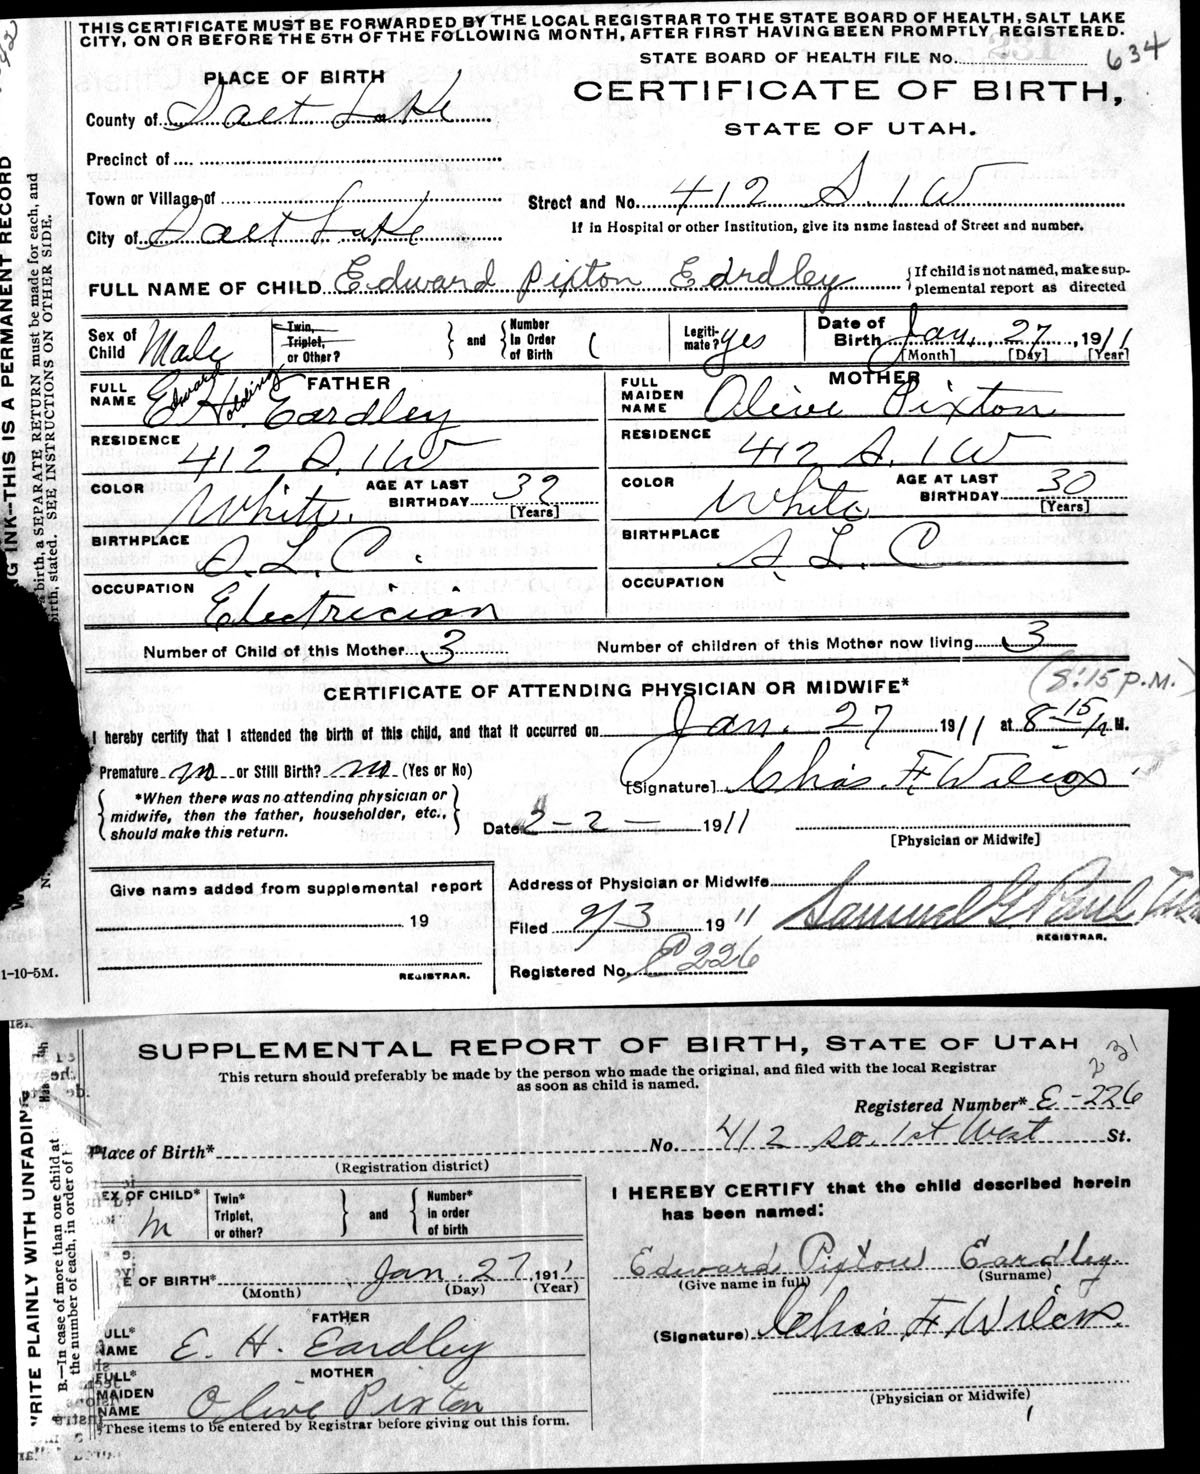 THIS CERTIFICATE MUST BE FORWARDED BY THE LOCAL REGISTRAR TO THE STATE BOARD OF HEALTH, SALT LAKE
CITY, ON OR BEFORE THE 5TH OF THE FOLLOWING MONTH, AFTER FIRST HAVING BEEN PROMPTLY REGISTERED.
STATE BOARD OF HEALTH FILE No. 634
PLACE OF BIRTH
CERTIFICATE OF BIRTH,
STATE OF UTAH.
County of Salt Lake
Precinct of
Town or Village of
Street and No. 412 S. 1 W
City of Salt Lake
If in Hospital or other Institution, give its name instead of Street and number.
FULL NAME OF CHILD Edward Pixton Eardley
{If child is not named, make sup-
plemental report as directed
Sex of Child Male
Twin, Triplet, or Other?
and
Number in Order of Birth
Legiti-mate? yes
Date of Birth Jan. 27, 1911
[Month] [Day] [Year]
FATHER
FULL NAME Edward Holding
E. H. Eardley
MOTHER
FULL MAIDEN NAME Olive Pixton
RESIDENCE 412 S. 1 W
RESIDENCE 412 S. 1 W
COLOR White.
AGE AT LAST BIRTHDAY 32
[Years]
COLOR White
AGE AT LAST BIRTHDAY 30
[Years]
BIRTHPLACE S. L. C.
BIRTHPLACE S. L. C
OCCUPATION Electrician
OCCUPATION
Number of Child of this Mother 3
Number of children of this Mother now living 3
CERTIFICATE OF ATTENDING PHYSICIAN OR MIDWIFE*
(8:15 P.M.)
I hereby certify that I attended the birth of this child, and that it occurred on Jan. 27 1911 at 8 15 M.
Premature no or Still Birth? no (Yes or No)
[Signature] Chas. F. Wilcox
{*When there was no attending physician or
midwife, then the father, householder, etc.,
should make this return.}
Date 2-2- 1911
[Physician or Midwife]
Give name added from supplemental report
19
REGISTRAR.
Address of Physician or Midwife
Filed 2/3 1911 Samuel G. Paul
REGISTRAR.
Registered No. E226
1-10-5M.
ING INK--THIS IS A PERMANENT RECORD
birth, a SEPARATE RETURN must be made for each, and
birth, stated. SEE INSTRUCTIONS ON OTHER SIDE.
SUPPLEMENTAL REPORT OF BIRTH, STATE OF UTAH
This return should preferably be made by the person who made the original, and filed with the local Registrar
as soon as child is named.
231
Registered Number* E-226
Place of Birth* No. 412 So. 1st West St.
(Registration district)
EX OF CHILD* M
Twin* Triplet, or other?
and
Number* in order of birth
E OF BIRTH* Jan. 27, 1911
(Month) (Day) (Year)
FATHER
ULL* NAME E. H. Eardley
MOTHER
FULL* MAIDEN NAME Olive Pixton
*These items to be entered by Registrar before giving out this form.
I HEREBY CERTIFY that the child described herein
has been named:
Edward Pixton Eardley.
(Give name in full) (Surname)
(Signature) Chas F. Wilcox.
(Physician or Midwife)
"RITE PLAINLY WITH UNFADING
B.—In case of more than one child at
the number of each, in order of